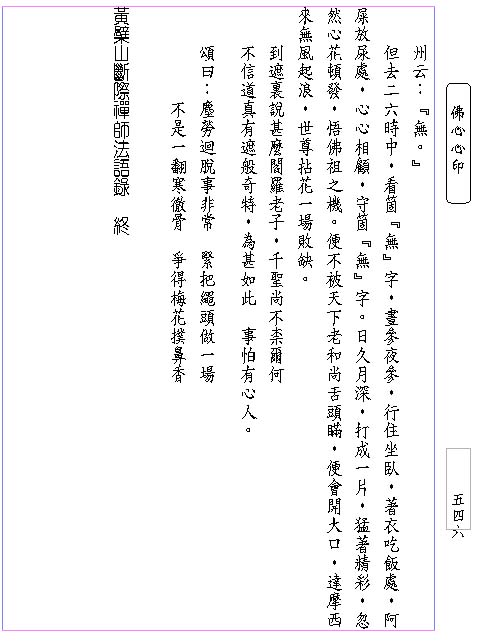 佛心心印
五四六
州云：『無。』
但去二六時中，看箇『無』字，晝參夜參，行住坐臥，著衣吃飯處，阿
屎放尿處，心心相顧，守箇『無』字。日久月深，打成一片，猛著精彩，忽
然心花頓發，悟佛祖之機。便不被天下老和尚舌頭瞞，便會開大口，達摩西
來無風起浪，世尊拈花一場敗缺。
到遮裏說甚麼閻羅老子，千聖尚不柰爾何
不信道真有遮般奇特，為甚如此　事怕有心人。
頌曰：塵勞迴脫事非常　緊把繩頭做一場
不是一翻寒徹骨　爭得梅花撲鼻香
黃檗山斷際禪師法語錄　終